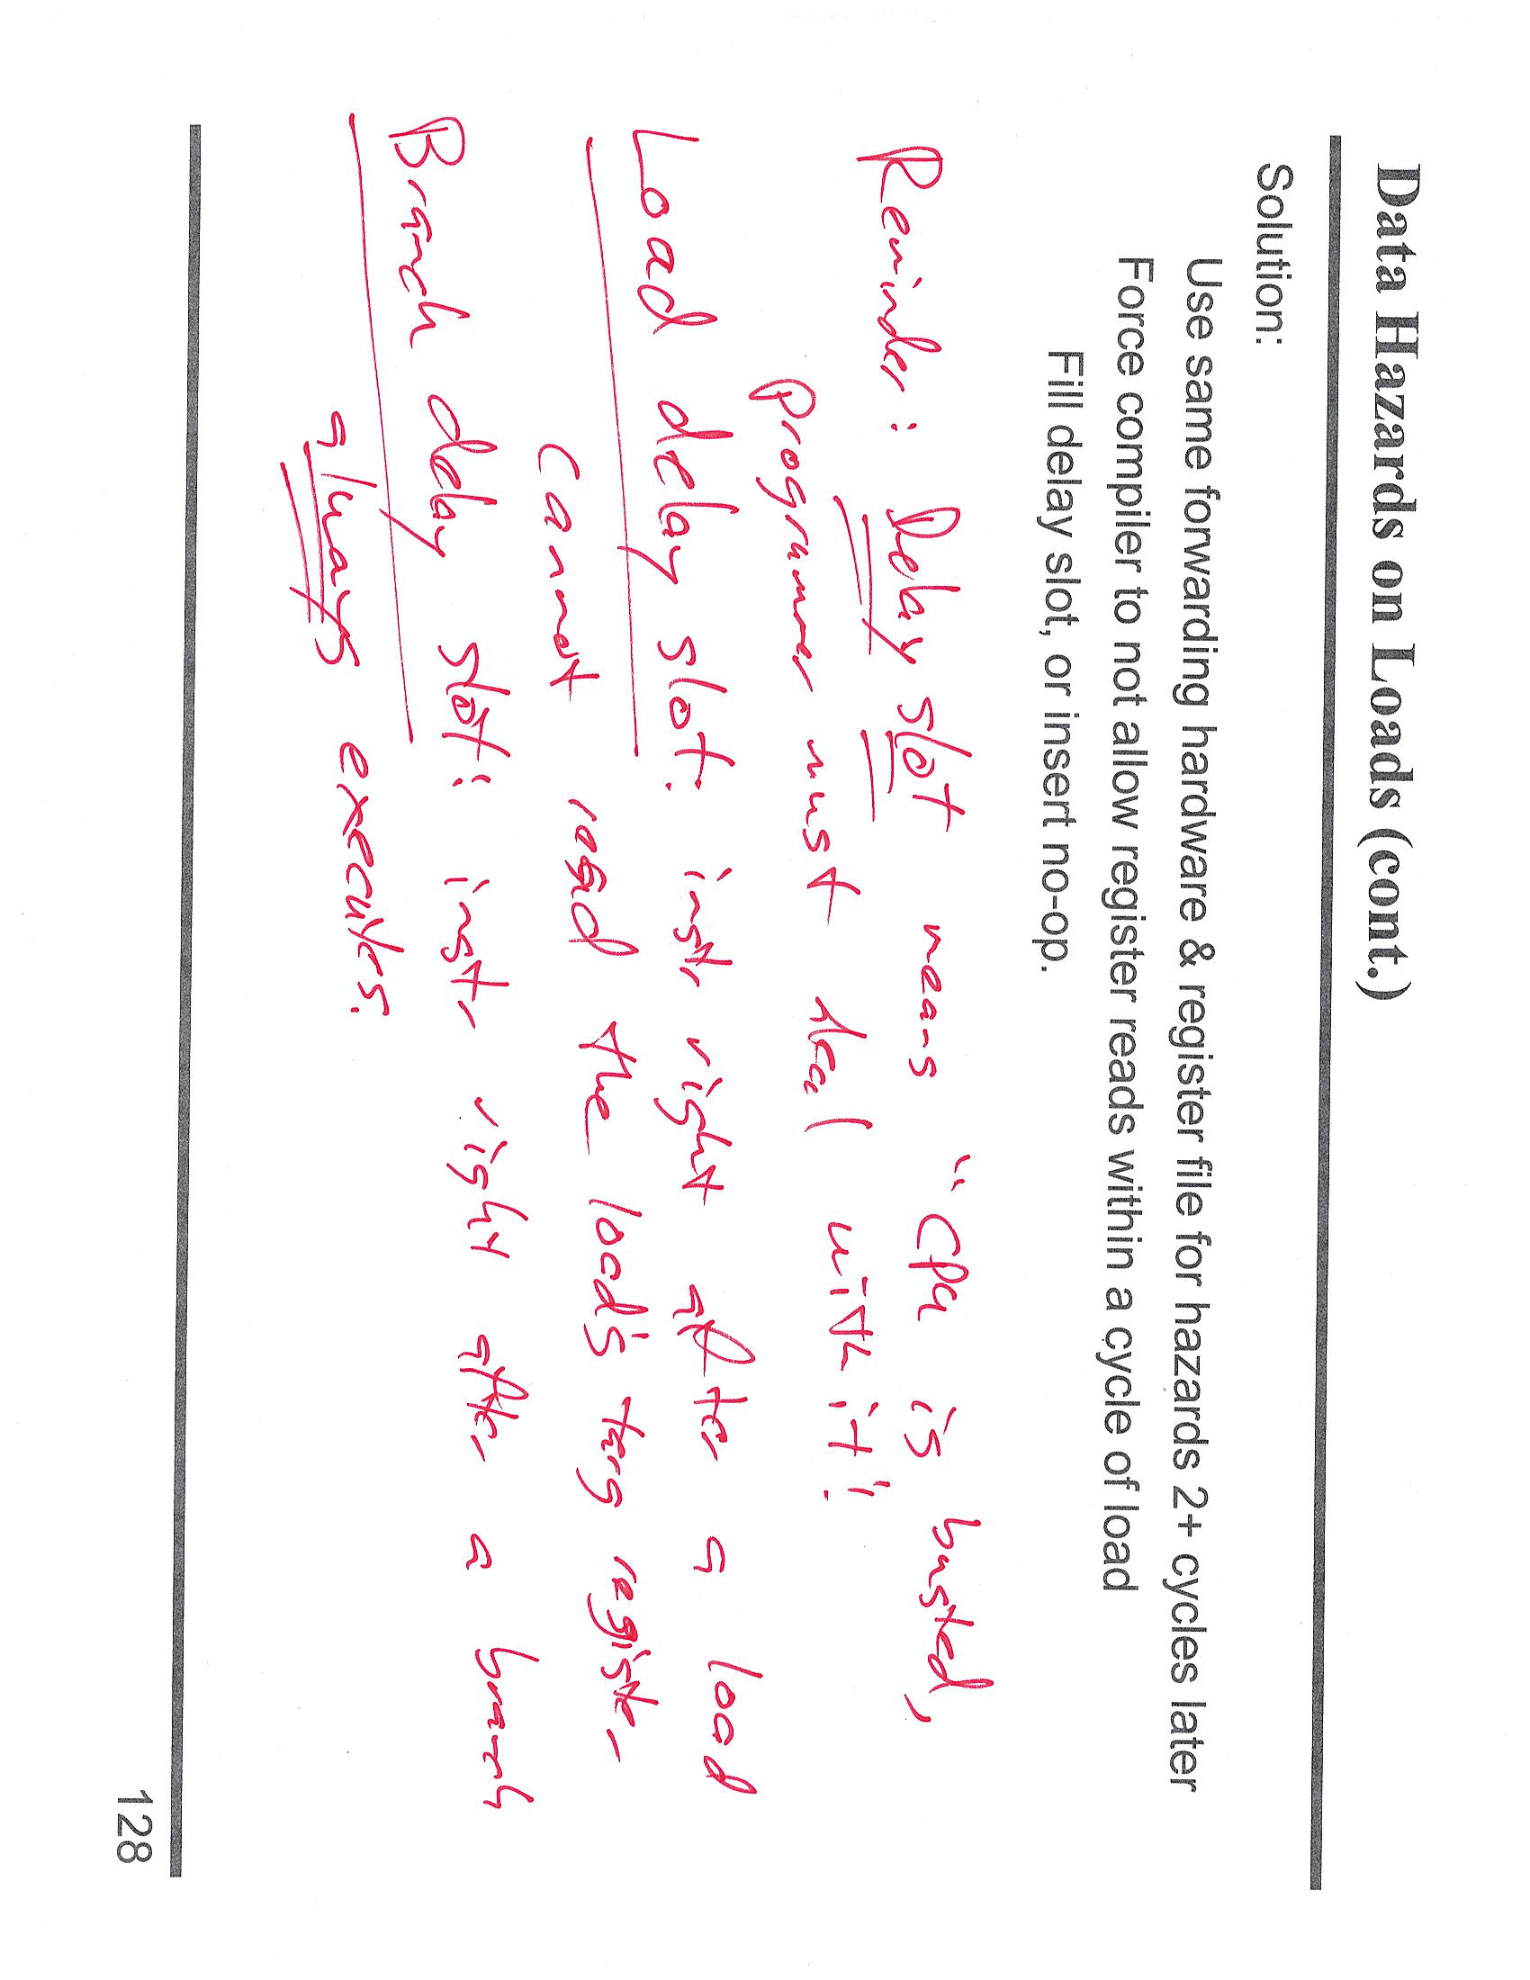 Data Hazards on Loads (cont.)
Solution:
Use same forwarding hardware & register file for hazards 2+ cycles later
Force compiler to not allow register reads within a cycle of load
Fill delay slot, or insert no-op.
Reminder: Delay slot means "CPU is busted,
programmer must deal with it!"
Load delay slot: instr right after a load
cannot read the load's targ register
Branch delay slot: instr right after a branch
always executes.
128